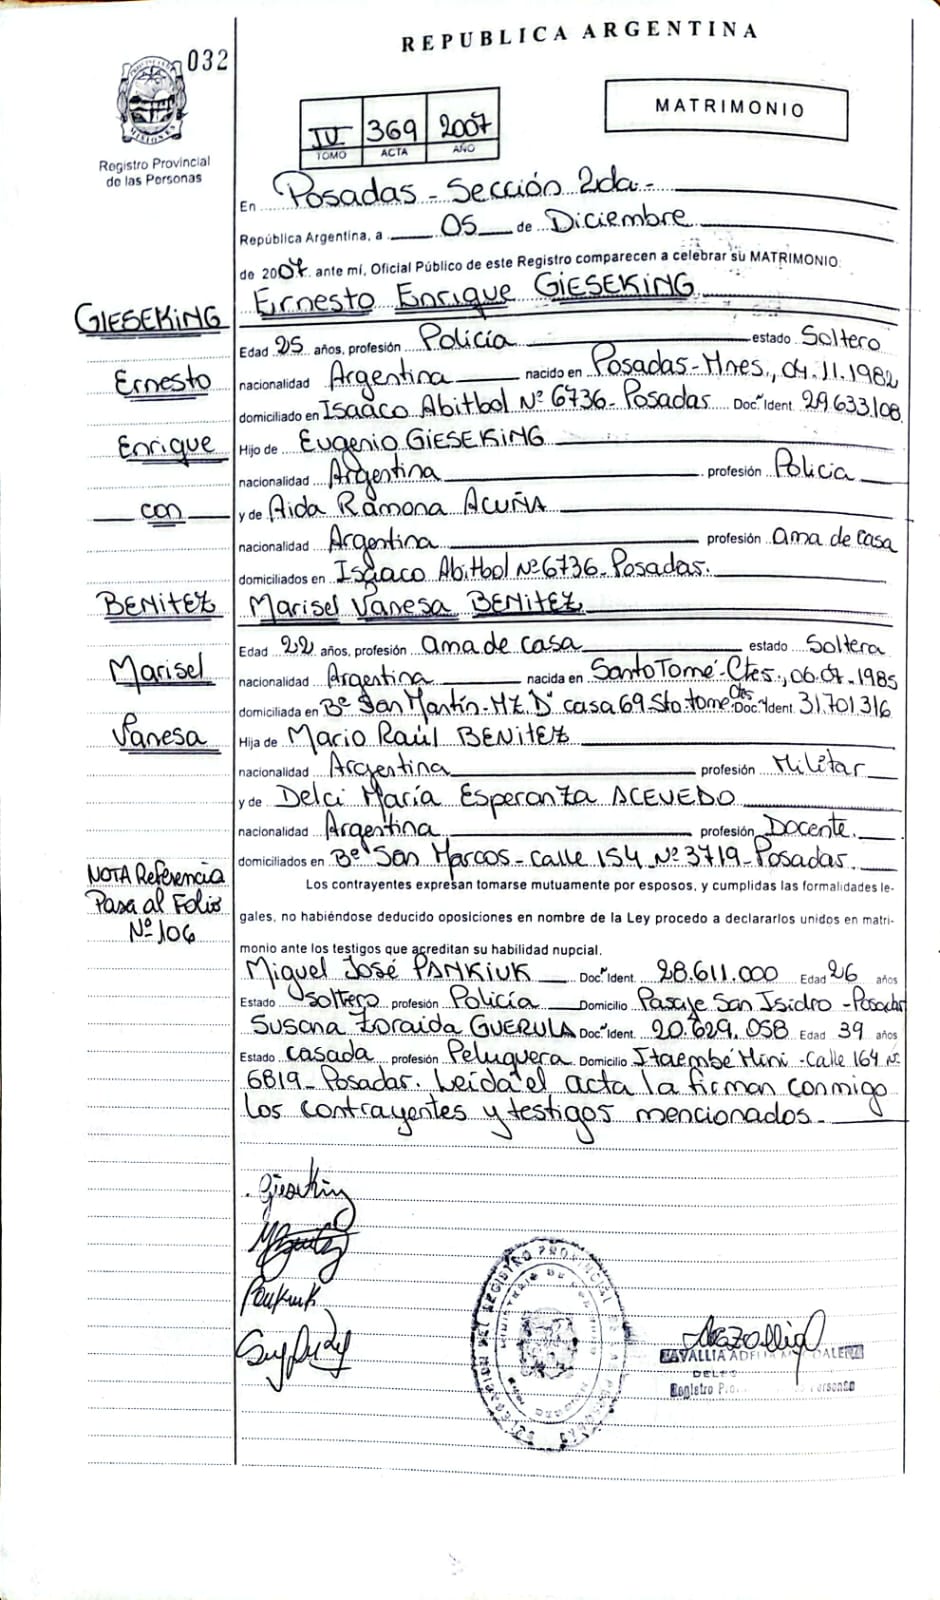 REPUBLICA ARGENTINA
032
MATRIMONIO
IV 369 2007
TOMO ACTA AÑO
Registro Provincial
de las Personas
En Posadas - Sección 2da.-
República Argentina, a 05 de Diciembre
de 2007. ante mí, Oficial Público de este Registro comparecen a celebrar su MATRIMONIO:
GIESEKING
Ernesto Enrique GIESEKING
Edad 25 años, profesión Policía estado Soltero
Ernesto
nacionalidad Argentina nacido en Posadas-Mnes., 04.11.1982
domiciliado en Isaaco Abitbol Nº 6736- Posadas Doc. Ident. 29.633.108
Enrique
Hijo de Eugenio GIESEKING
nacionalidad Argentina profesión Policia
con
y de Aida Ramona ACUÑA
nacionalidad Argentina profesión ama de casa
domiciliados en Isaaco Abitbol Nº 6736- Posadas.
BENITEZ
Marisel Vanesa BENITEZ
Edad 22 años, profesión ama de casa estado Soltera
Marisel
nacionalidad Argentina nacida en Santo Tomé-Ctes., 06.07.1985
domiciliada en Bº San Martín-Mz. D casa 69 Sto. tome Ctes Doc. Ident. 31.701.316
Vanesa
Hija de Mario Raúl BENITEZ
nacionalidad Argentina profesión Militar
y de Delci María Esperanza ACEVEDO
nacionalidad Argentina profesión Docente.
domiciliados en Bº San Marcos - calle 154 Nº 3719- Posadas.
NOTA Referencia
Pasa al Folio
Nº 106
Los contrayentes expresan tomarse mutuamente por esposos, y cumplidas las formalidades le-
gales, no habiéndose deducido oposiciones en nombre de la Ley procedo a declararlos unidos en matri-
monio ante los testigos que acreditan su habilidad nupcial.
Miguel José PANKIUK Doc. Ident. 28.611.000 Edad 26 años
Estado soltero profesión Policía Domicilio Pasaje San Isidro - Posadas
Susana Zoraida GUERULA Doc. Ident. 20.629.058 Edad 39 años
Estado casada profesión Peluquera Domicilio Itaembé Mini - Calle 164 Nº
6819- Posadas. Leída el acta la firman conmigo
los contrayentes y testigos mencionados.-
Gieseking
Pankiuk
REGISTRO PROVINCIAL